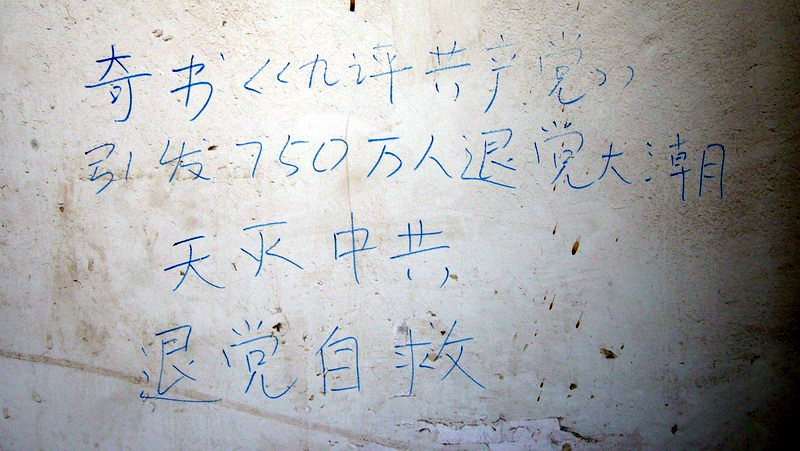 奇书<<九评共产党>>
引发750万人退党大潮
天灭中共
退党自救